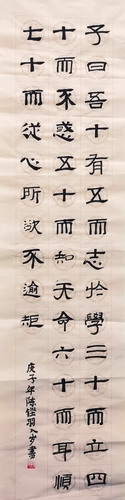 子曰吾十有五而志於學三十而立四
十而不惑五十而知天命六十而耳順
七十而從心所欲不逾矩
庚子年陳鏗羽八岁書